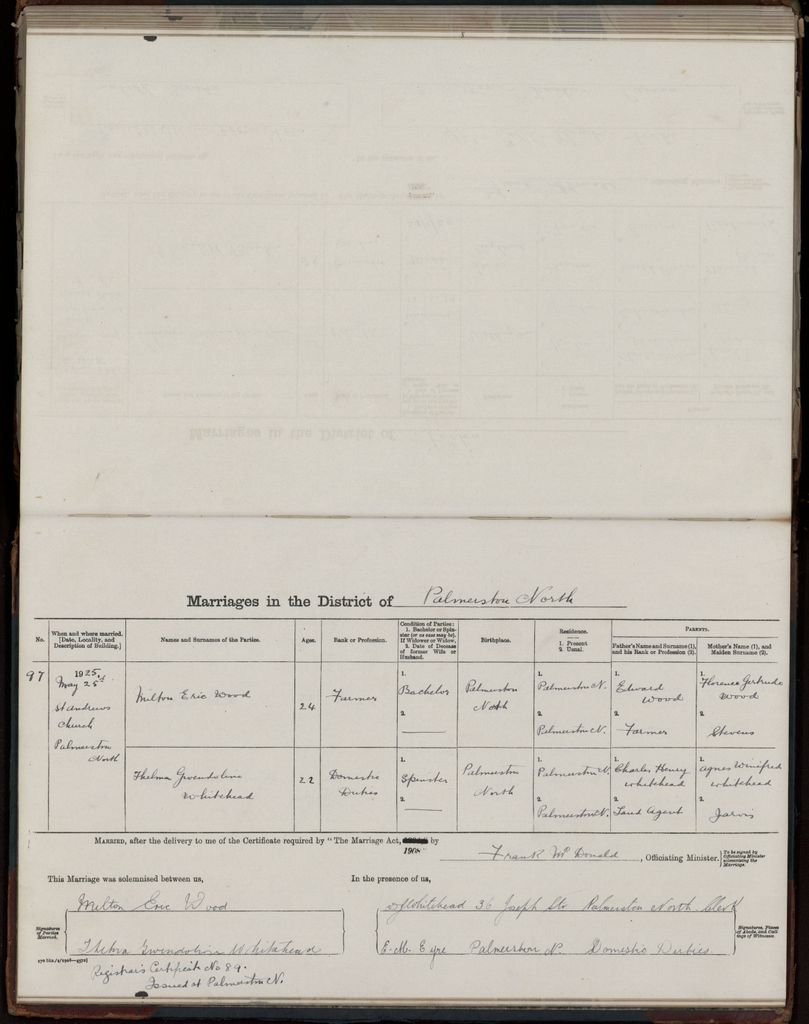 Marriages in the District of Palmerston North
No.
When and where married. [Date, Locality, and Description of Building.]
Names and Surnames of the Parties.
Ages.
Rank or Profession.
Condition of Parties: 1. Bachelor or Spinster (or as case may be). If Widower or Widow, 2. Date of Decease of former Wife or Husband.
Birthplace.
Residence. 1. Present. 2. Usual.
Parents.
Father's Name and Surname (1), and his Rank or Profession (2).
Mother's Name (1), and Maiden Surname (2).
97
1925,
May 25th
St Andrews
Church
Palmerston
North
Milton Eric Wood
24
Farmer
1.
Bachelor
2.
Palmerston
North
1.
Palmerston N.
2.
Palmerston N.
1.
Edward
Wood
2.
Farmer
1.
Florence Gertrude
Wood
2.
Stevens
Thelma Gwendoline
Whitehead
22
Domestic
Duties
1.
Spinster
2.
Palmerston
North
1.
Palmerston N.
2.
Palmerston N.
1.
Charles Henry
Whitehead
2.
Land Agent
1.
Agnes Winifred
Whitehead
2.
Jarvis
Married, after the delivery to me of the Certificate required by "The Marriage Act, 1908 by
Frank McDonald, Officiating Minister.
[To be signed by Officiating Minister solemnizing the Marriage.
This Marriage was solemnised between us,
In the presence of us,
Signatures of Parties Married.
Milton Eric Wood
Thelma Gwendoline Whitehead
Whitehead 36 Joseph Str Palmerston North Clerk
E. M. Eyre Palmerston N. Domestic Duties
Signatures, Places of Abode, and Callings of Witnesses.
Registrar's Certificate No 89.
Issued at Palmerston N.